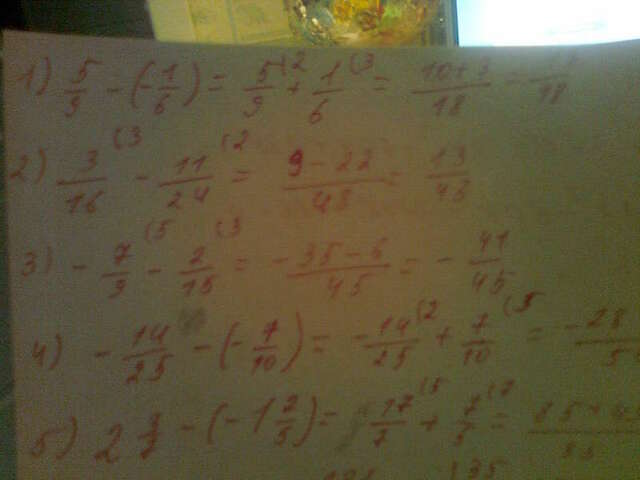 1) 5/9 - (-1/6) = 5/9 (2 + 1/6 (3 = 10+3/18 = 13/18
2) 3/16 (3 - 11/24 (2 = 9-22/48 = 13/48
3) - 7/9 (5 - 2/15 (3 = - 35-6/45 = - 41/45
4) - 14/25 - (- 7/10) = - 14/25 (2 + 7/10 (5 = -28
5) 2 3/7 - (-1 2/5) = 17/7 (5 + 7/5 (7 = 85+4
(35